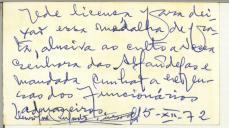 Pede licença para dei-
xar essa medalha de pra-
ta, alusiva ao culto a Nossa
Senhora das Alfândegas e
mandada cunhar a expen-
sas dos Funcionários
aduaneiros.
15-XII-72